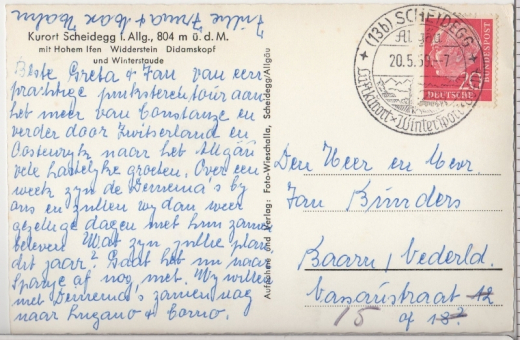 Kurort Scheidegg i. Allg., 804 m ü. d. M.
mit Hohem Ifen Widderstein Didamskopf
und Winterstaude
Beste Greta & Jan van een
prachtige pinksteren tour aan
het meer van Constanze en
verder door Zwitserland en
Oostenryk naar het Allgäu
vele hartelyke groeten. Over een
week zyn de Demema's by
ons en zullen wy dan weer
gezellige dagen met hun samen
beleven. Wat zyn jullie plan
dit jaar? Gaat het nu naar
Spanje of nog niet. Wy willen
met Demema's samen nag
naar Lugano & Como.
Aufnahme und Verlag: Foto-Wieschalla, Scheidegg/Allgäu
(13b) SCHEIDEGG
Allgäu
20.5.59.-7
Luftkurort × Wintersport
DEUTSCHE
BUNDESPOST
20
Den Heer en Mevr.
Jan Binders
Baarn, Nederld.
Vanaustraat 12
15 of 13?